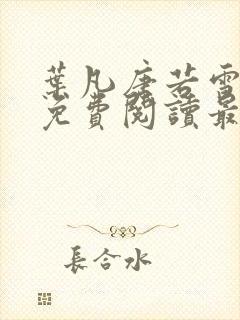 葉凡唐若雪
免費閱讀最
長合水